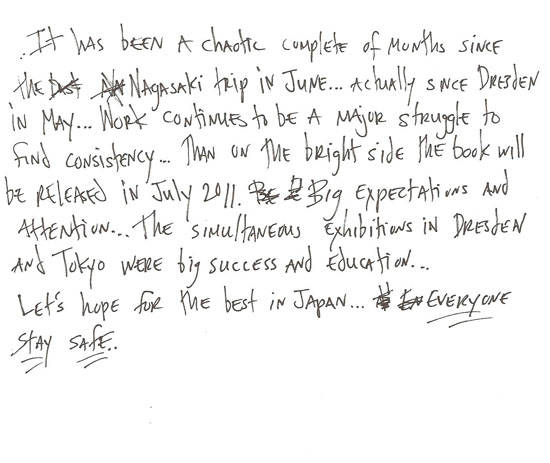 .It has been a chaotic complete of months since
the Nagasaki trip in June... actually since Dresden
in May... Work continues to be a major struggle to
find consistency... Than on the bright side the book will
be released in July 2011. Big expectations and
attention... The simultaneous exhibitions in Dresden
and Tokyo were big success and education...
Let's hope for the best in Japan... Everyone
stay safe..